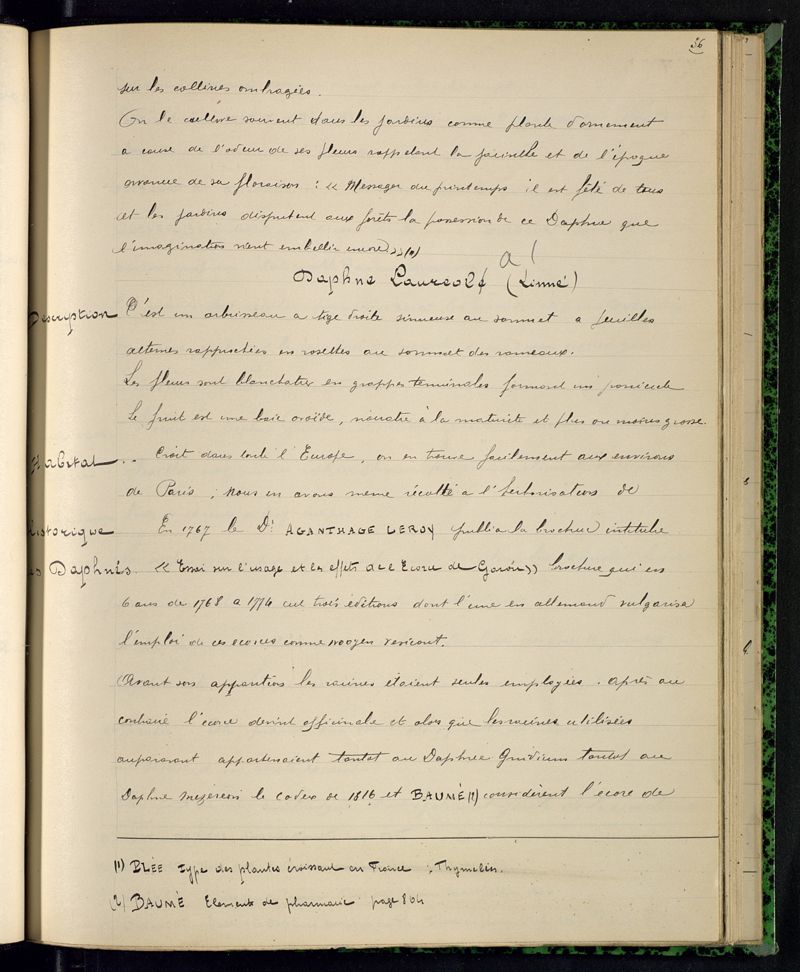 56
sur les collines ombragées.
On le cultive souvent dans les jardins comme plante d'ornement
a cause de l'odeur de ses fleurs rappelant la jacinthe et de l'époque
avancée de sa floraison : « Messager du printemps il est fêté de tous
et les jardins disputent aux forêts la possession de ce Daphné que
l'imagination vient embellir encore » (1)
Daphne Laureola (Linné)
Description C'est un arbrisseau a tige droite sinueuse au sommet a feuilles
alternes rapprochées en rosettes au sommet des rameaux.
Les fleurs sont blanchatres en grappes terminales formant une panicule
Le fruit est une baie ovoïde, noiratre à la maturité et plus ou moins grosse.
Habitat .. Croit dans toute l'Europe, on en trouve facilement aux environs
de Paris ; Nous en avons même récolté a l'herborisation de
Historique En 1767 le Dr AGANTHAGE LEROY publia la brochure intitulée
des Daphnés. « Essai sur l'usage et les effets de l'Ecorce de Garou » brochure qui en
6 ans de 1768 a 1774 eut trois éditions dont l'une en allemand vulgarisa
l'emploi de ces ecorces comme moyen vesicant.
Avant son apparition les racines étaient seules employées. Après au
contraire l'écorce devint officinale et alors que les racines utilisées
auparavant appartenaient tantot au Daphne Gnidium tantot au
Daphne mezereum le codex de 1816 et BAUMÉ (2) considèrent l'écorce de
(1) BLÉE Type des plantes croissant en France : Thymelées.
(2) BAUMÉ Elements de pharmacie page 864